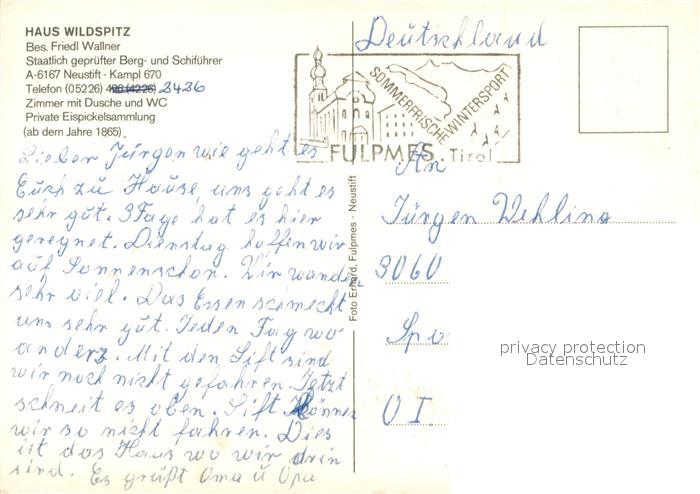 HAUS WILDSPITZ
Bes. Friedl Wallner
Staatlich geprüfter Berg- und Schiführer
A-6167 Neustift · Kampl 670
Telefon (05226) 2426
Zimmer mit Dusche und WC
Private Eispickelsammlung
(ab dem Jahre 1865)
Lieber Jürgen wie geht es
Euch zu Hause, uns geht es
sehr gut. 3 Tage hat es hier
geregnet. Dienstag hoffen wir
auf Sonnenschein. Wir wandern
sehr viel. Das Essen schmeckt
uns sehr gut. Jeden Tag wo
anders. Mit den Lift sind
wir noch nicht gefahren. Jetzt
schneit es oben. Lift können
wir so nicht fahren. Dies
ist das Haus wo wir drin
sind. Es grüßt Oma u Opa
Foto Erhard, Fulpmes - Neustift
Deutschland
SOMMERFRISCHE WINTERSPORT
FULPMES . Tirol
An
Jürgen Wehling
3060
Spo
privacy protection
Datenschutz
O I